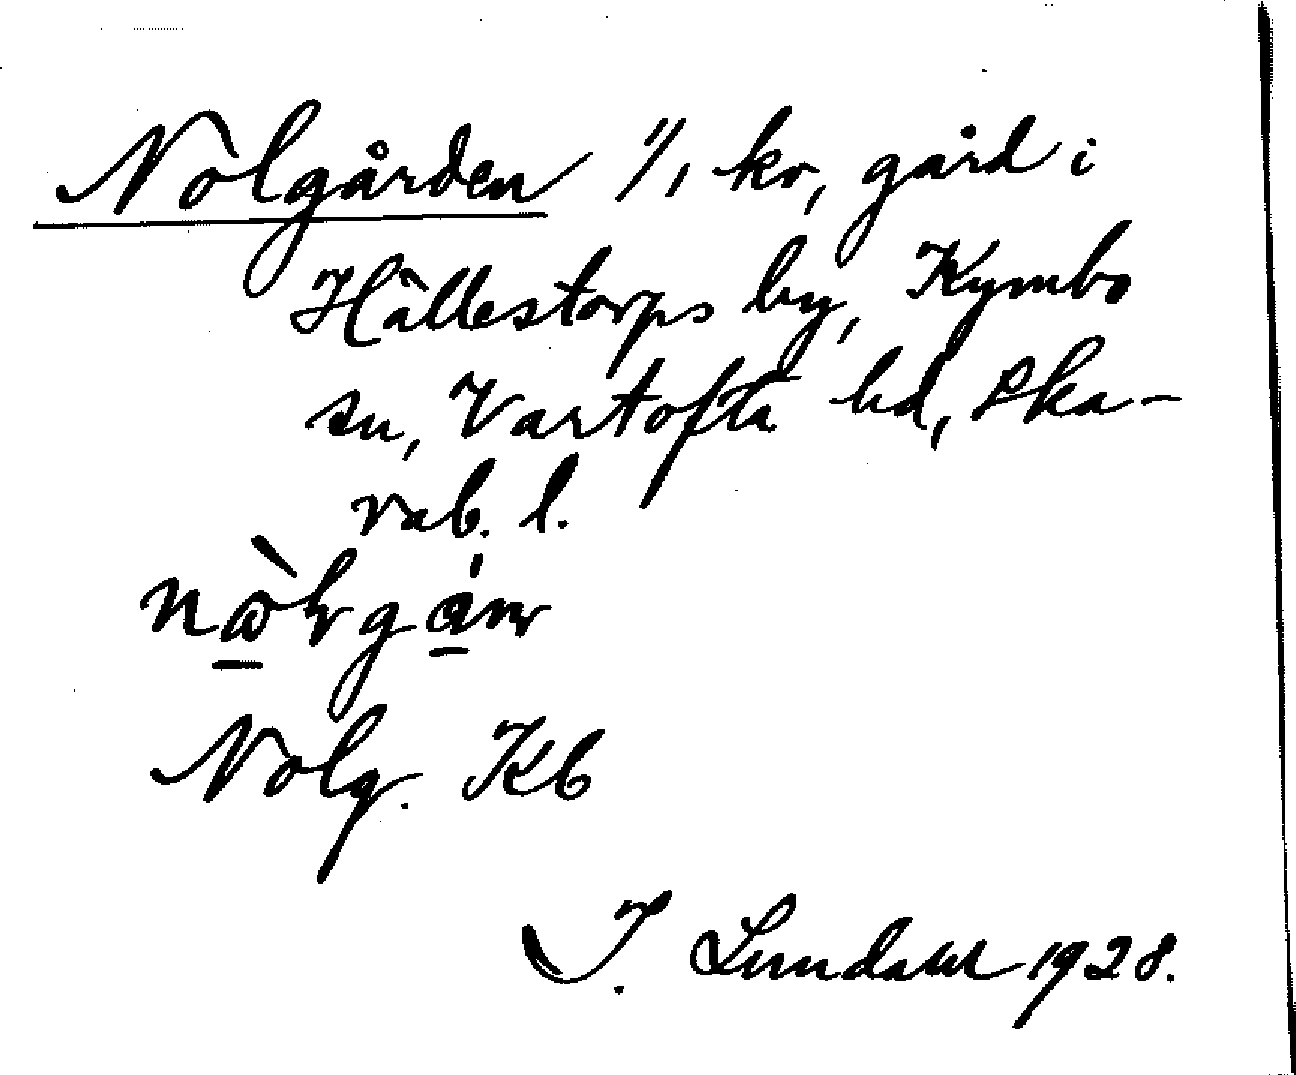 Nolgården 1/1 kr, gård i
Hällestorps by, Kymbo
sn, Vartofta hd, Ska-
rab. l.
Nolg. Kb
I. Lundahl 1928.